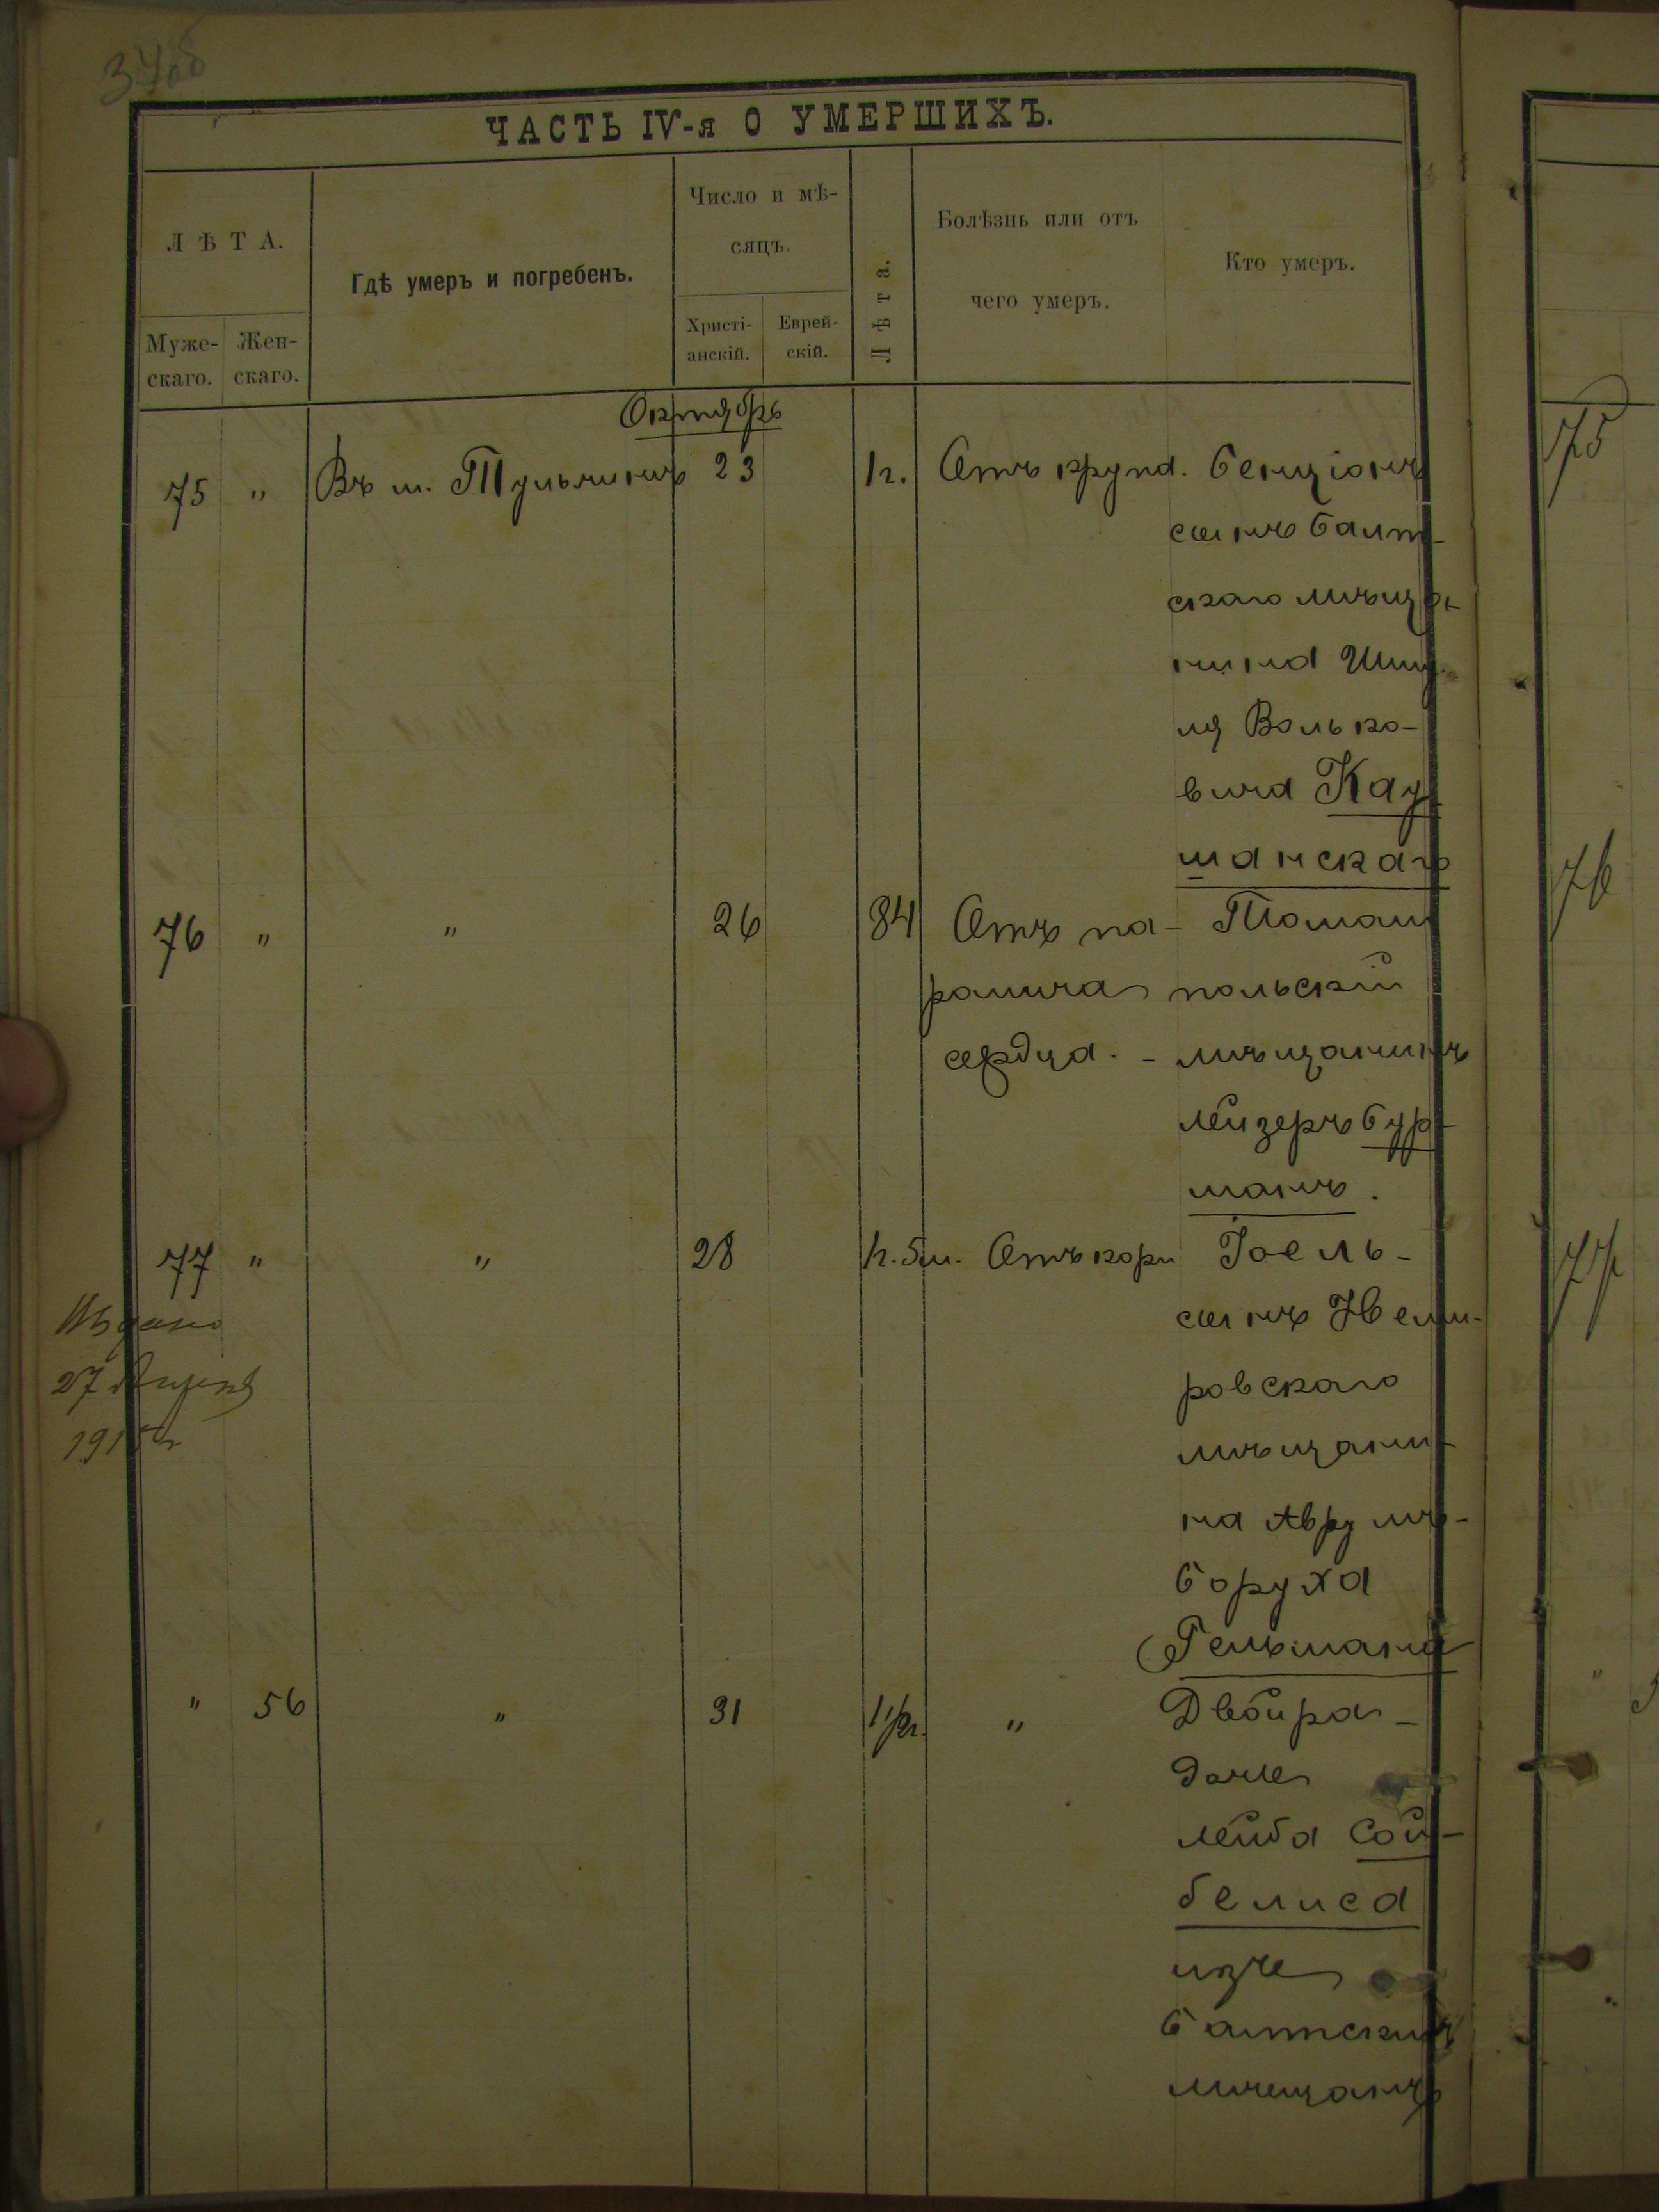 34об
ЧАСТЬ IV-я О УМЕРШИХЪ.
ЛѢТА.
Муже-
скаго.
Жен-
скаго.
Гдѣ умеръ и погребенъ.
Число и мѣ-
сяцъ.
Христі-
анскій.
Еврей-
скій.
Лѣта.
Болѣзнь или отъ
чего умеръ.
Кто умеръ.
Октябрь
75 " Въ м. Тульчинѣ 23 1г. Отъ крупа. Бенціонъ
сынъ Балт-
скаго мѣща-
нина
ля Волько-
вича Кау
шанскаго
76 " " 26 84 Отъ па- Томаш
ралича польскій
сердца. - мѣщанинъ
Лейзеръ Бур-
манъ.
77 " " 28 1г. 5м. Отъ кори Іоель-
сынъ Неми-
ровскаго
мѣщани-
на Аврумъ-
Боруха
Гельмана
Выдано
27
1915г
" 56 " 31 " Двойра-
дочь
Лейба Сой-
белиса
изъ
Балтскихъ
мѣщанъ
75
76
77
"